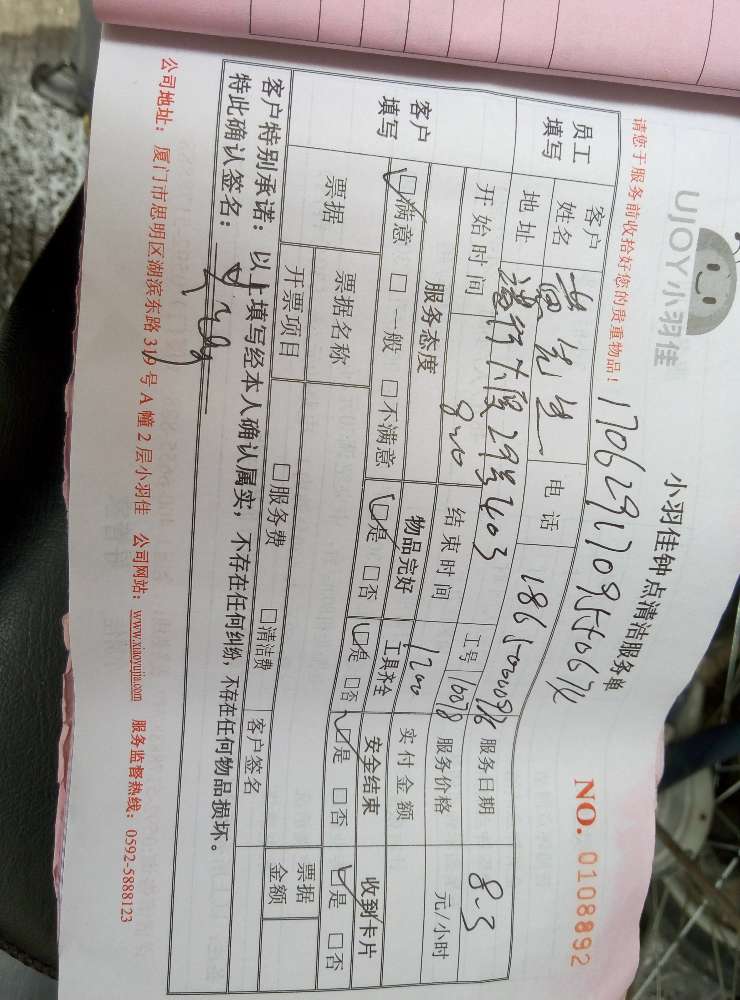 UJOY小羽佳
小羽佳钟点清洁服务单
NO. 0108892
请您于服务前收拾好您的贵重物品！
员工填写 客户姓名 先生 电话 服务日期 8-3
地址 工号 服务价格 元/小时
开始时间 结束时间 实付金额
客户填写 服务态度 物品完好 工具齐全 安全结束 收到卡片
☑满意 □一般 □不满意 ☑是 □否 ☑是 □否 ☑是 □否 ☑是 □否
票据 票据名称 票据金额
开票项目 □服务费 □清洁费 客户签名
客户特别承诺：以上填写经本人确认属实，不存在任何纠纷，不存在任何物品损坏。
特此确认签名：
公司地址：厦门市思明区湖滨东路319号A幢2层小羽佳 公司网站：www.xiaoyujia.com 服务监督热线：0592-5888123